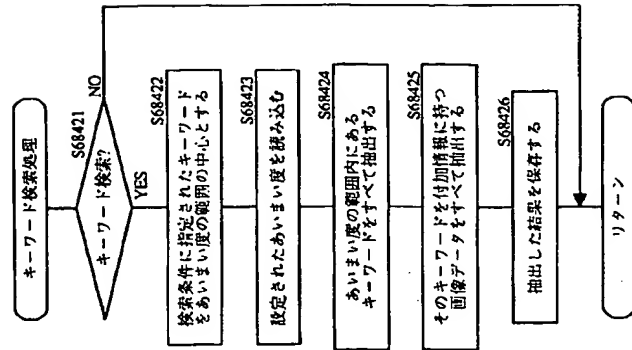 キーワード検索処理
S68421
キーワード検索?
NO
YES
S68422
検索条件に指定されたキーワード
をあいまい度の範囲の中心とする
S68423
設定されたあいまい度を読み込む
S68424
あいまい度の範囲内にある
キーワードをすべて抽出する
S68425
そのキーワードを付加情報に持つ
画像データをすべて抽出する
S68426
抽出した結果を保存する
リターン